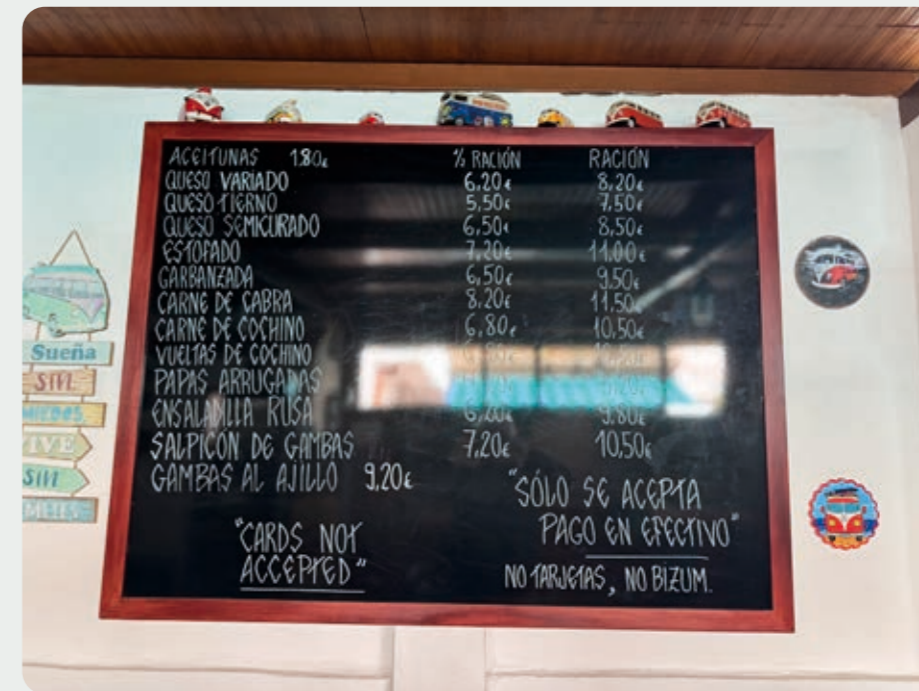 ACEITUNAS 1.80€ % RACIÓN RACIÓN
QUESO VARIADO 6,20€ 8,20€
QUESO TIERNO 5,50€ 7,50€
QUESO SEMICURADO 6,50€ 8,50€
ESTOFADO 7,20€ 11.00€
GARBANZADA 6,50€ 9.50€
CARNE DE CABRA 8,20€ 11,50€
CARNE DE COCHINO 6,80€ 10,50€
VUELTAS DE COCHINO
PAPAS ARRUGADAS
ENSALADILLA RUSA 9.80€
SALPICÓN DE GAMBAS 7,20€ 10,50€
GAMBAS AL AJILLO 9,20€
"SÓLO SE ACEPTA
PAGO EN EFECTIVO"
NO TARJETAS, NO BIZUM.
"CARDS NOT
ACCEPTED"
Sueña
SIN
VIVE
SIN